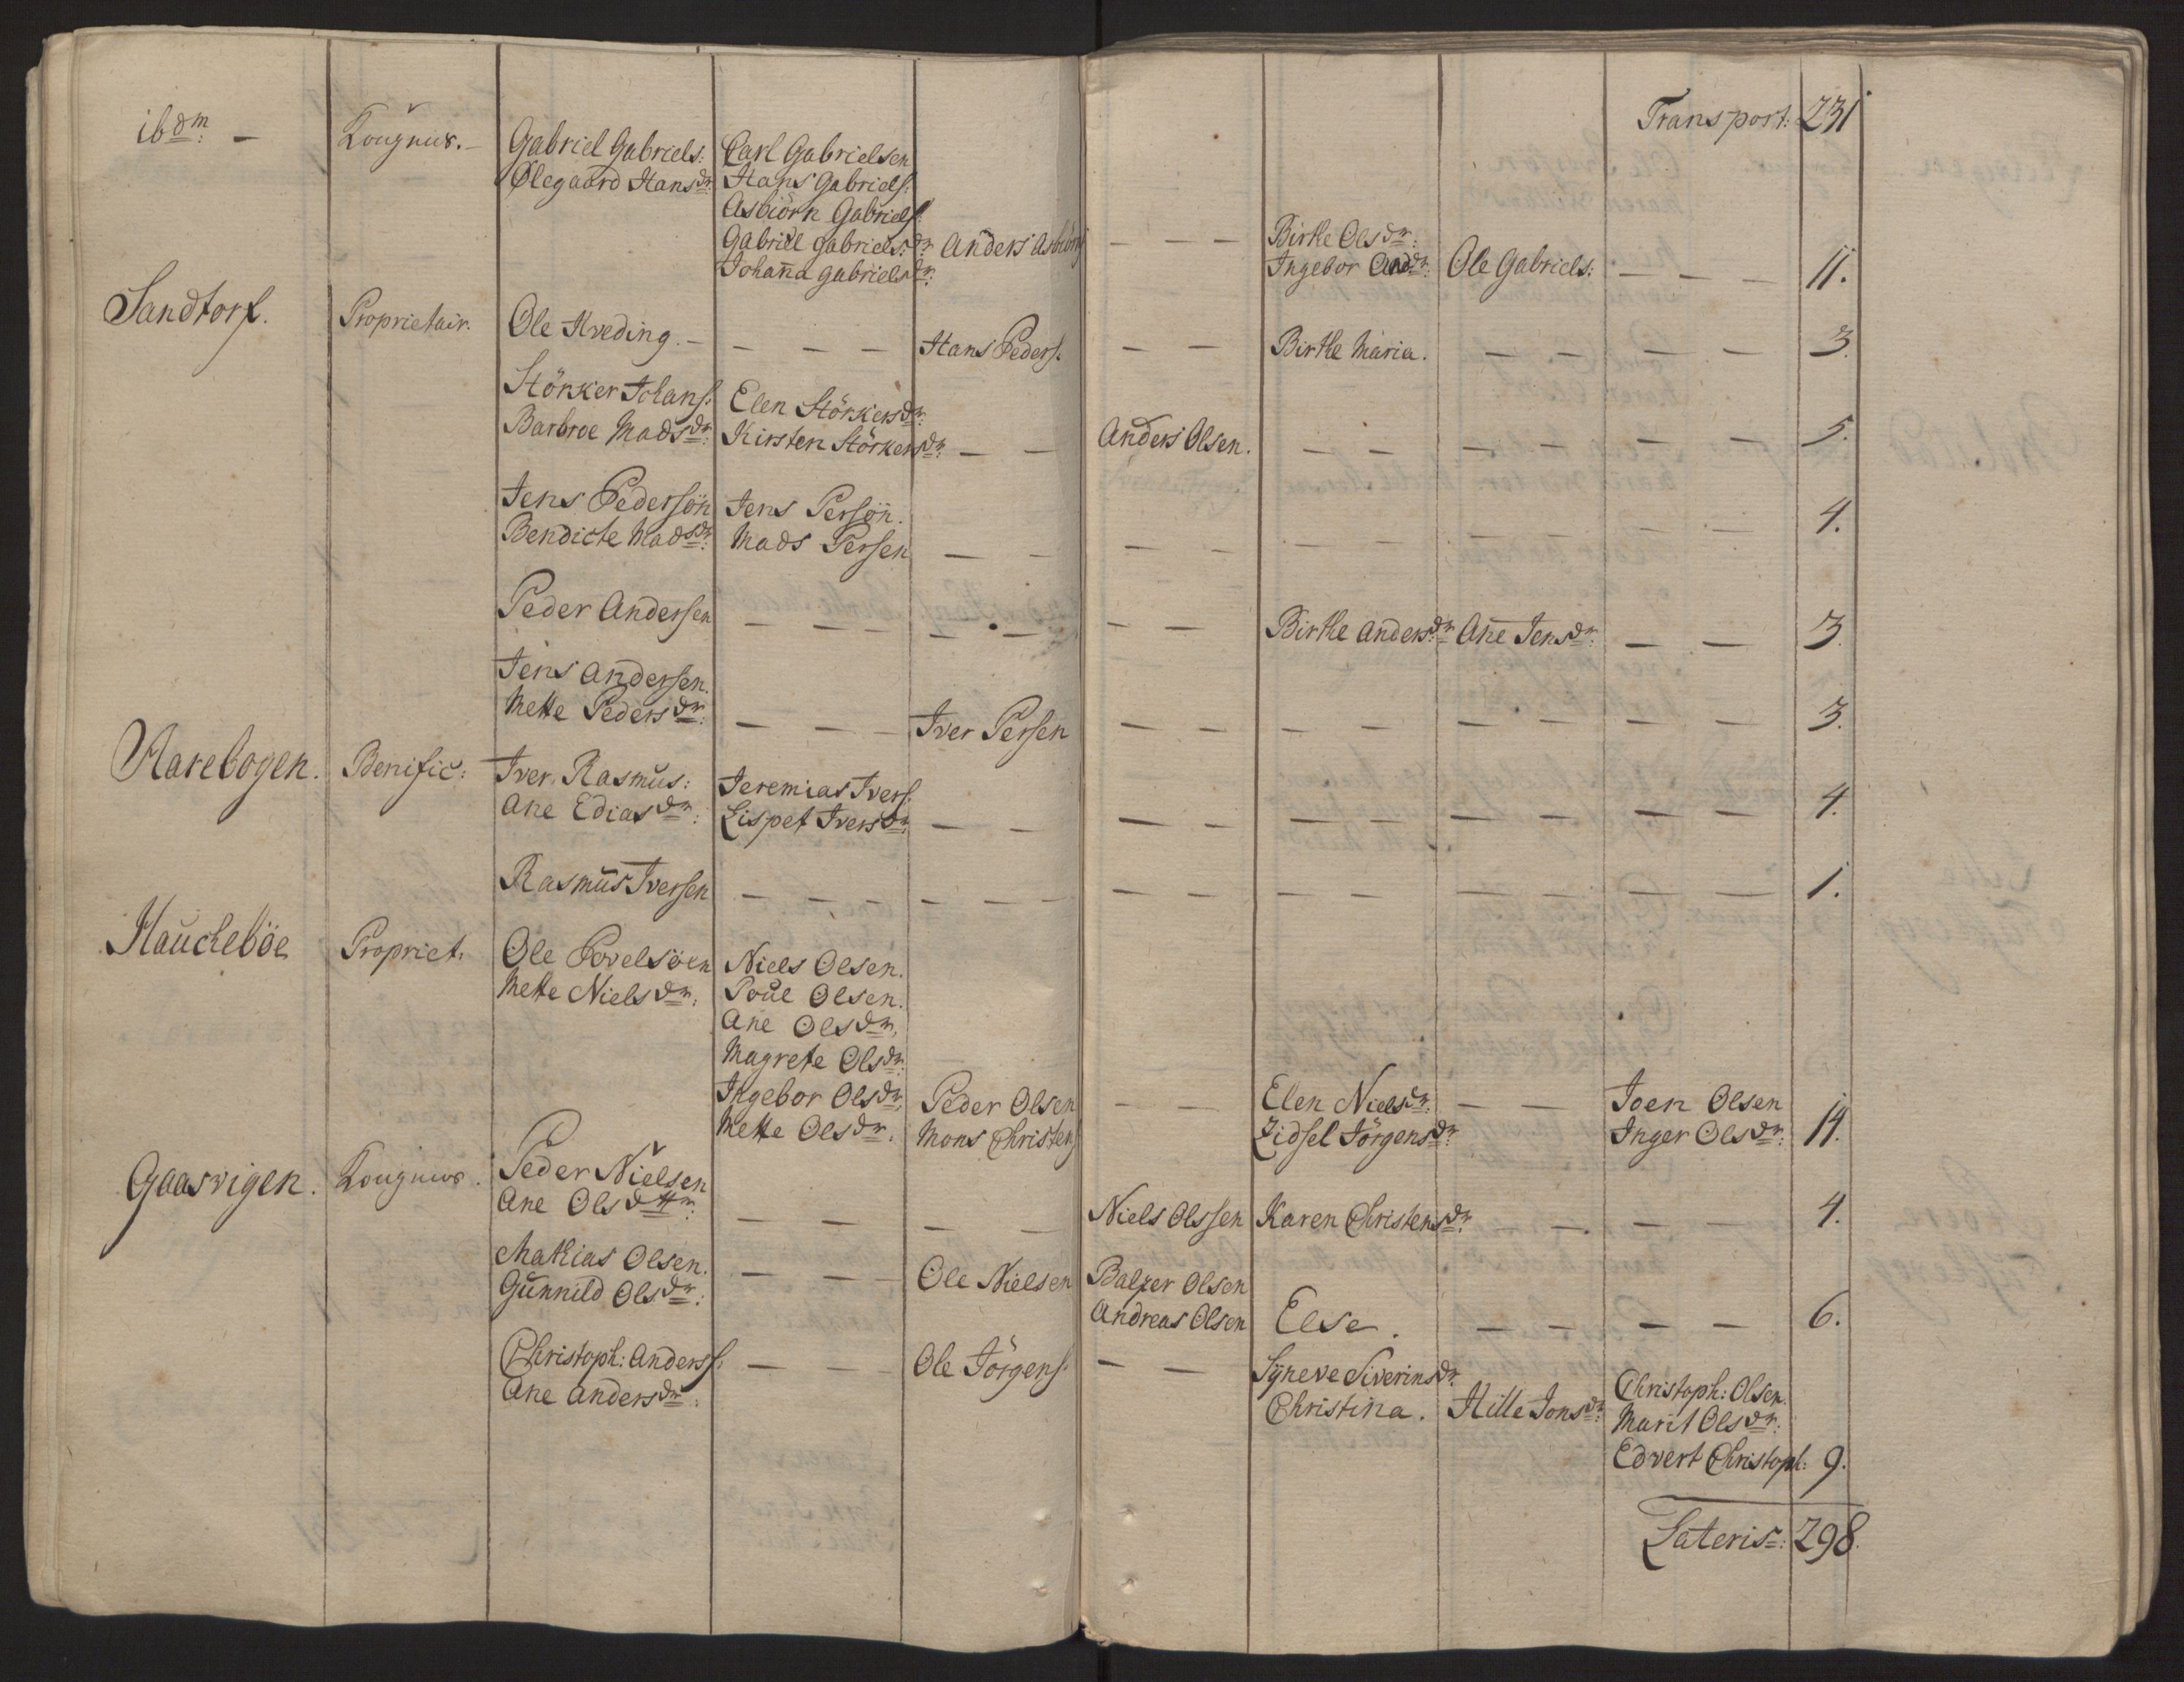 Transport: 231
ibdm: — Kongnus. — Gabriel Gabriels: Carl Gabrielsen
Ølegaard Hansdr: Hans Gabriels:
Asbiörn Gabriels:
Gabriel gabriels:dr: Anders Asbiörns — — — Birthe Olsdr:
Johanna gabrielsdr: Ingebor Andr: Ole Gabriels: — — — 11.
Sandtorf. Proprietair. Ole Hveding. — — — — Hans Peders: — — Birthe Maria. — — — — 3.
Störker Johans: Elen Störkersdr:
Barbroe Madsdr: Kirsten Störkersdr: — — Anders Olsen. — — — — — — 5.
Jens Pedersön Jens Persön.
Bendicte Madsdr: Mads Persen — — — — — — — — — — 4.
Peder Andersen — — — — — — — Birthe Andersdr: Ane Jensdr: — — 3.
Jens Andersen.
Mette Pedersdr: — — — Iver Persen — — — — — — — — 3.
Harebogen. Benific: Iver Rasmus: Jeremias Ivers:
Ane Ediasdr: Lispet Iversdr: — — — — — — — — — — 4.
Rasmus Iversen — — — — — — — — — — — — — — 1.
Hauckeböe Propriet. Ole Povelsöen Niels Olsen.
Mette Nielsdr: Poul Olsen.
Ane Olsdr:
Magrete Olsdr:
Ingebor Olsdr: Peder Olsen — — Elen Nielsdr: — — Joen Olsen
Mette Olsdr: Mons Christens Zidsel Jörgensdr: Inger Olsdr: 14.
Gaasvigen. Kongnus. Peder Nielsen
Ane Olsdttr: — — — — Niels Olssen Karen Christensdr: — — — — 4.
Mathias Olsen. — — — Ole Nielsen Balzer Olsen
Gunnild Olsdr: Andreas Olsen Else. — — — — 6.
Christoph: Anderss: — — — Ole Jörgens: — — Syneve Siverinsdr:
Ane Andersdr: Christina. Hille Jonsdr: Christoph: Olsen.
Marit Olsdr:
Edvert Christoph: 9.
Lateris: 298.